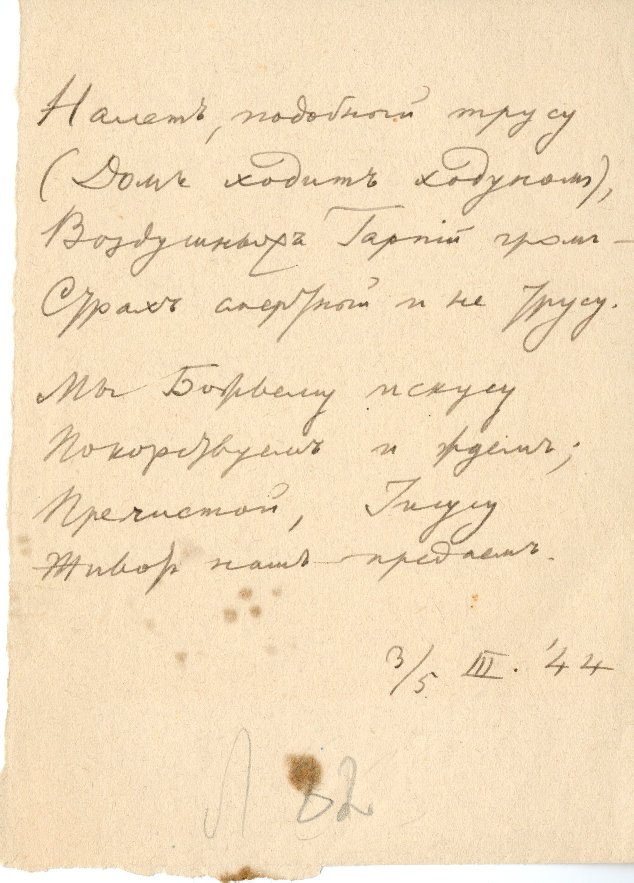 Налетъ, подобный трусу
(Домъ ходитъ ходуномъ),
Воздушныхъ Гарпій громъ —
Страхъ смертный и не трусу.
Мы Божьему искусу
Покорствуемъ и ждемъ;
Пречистой, Іисусу
Животъ нашъ предаемъ.
3/5 III. '44
Л 82